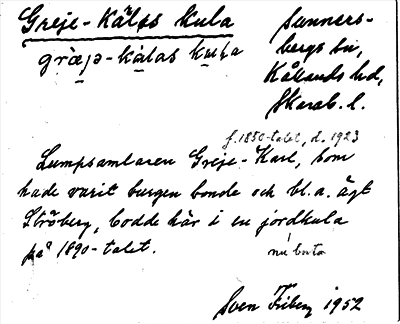 Greje-Käl:s kula
Sunners-
bergs sn,
Kållands hd,
Skarab. l.
græjə-kälas kula
f. 1850-talet, d. 1923
Lumpsamlaren Greje-Karl, som
hade varit burgen bonde och bl.a. ägt
Ströberg, bodde här i en jordkula
på 1890-talet.
nu borta
Sven Friberg 1952